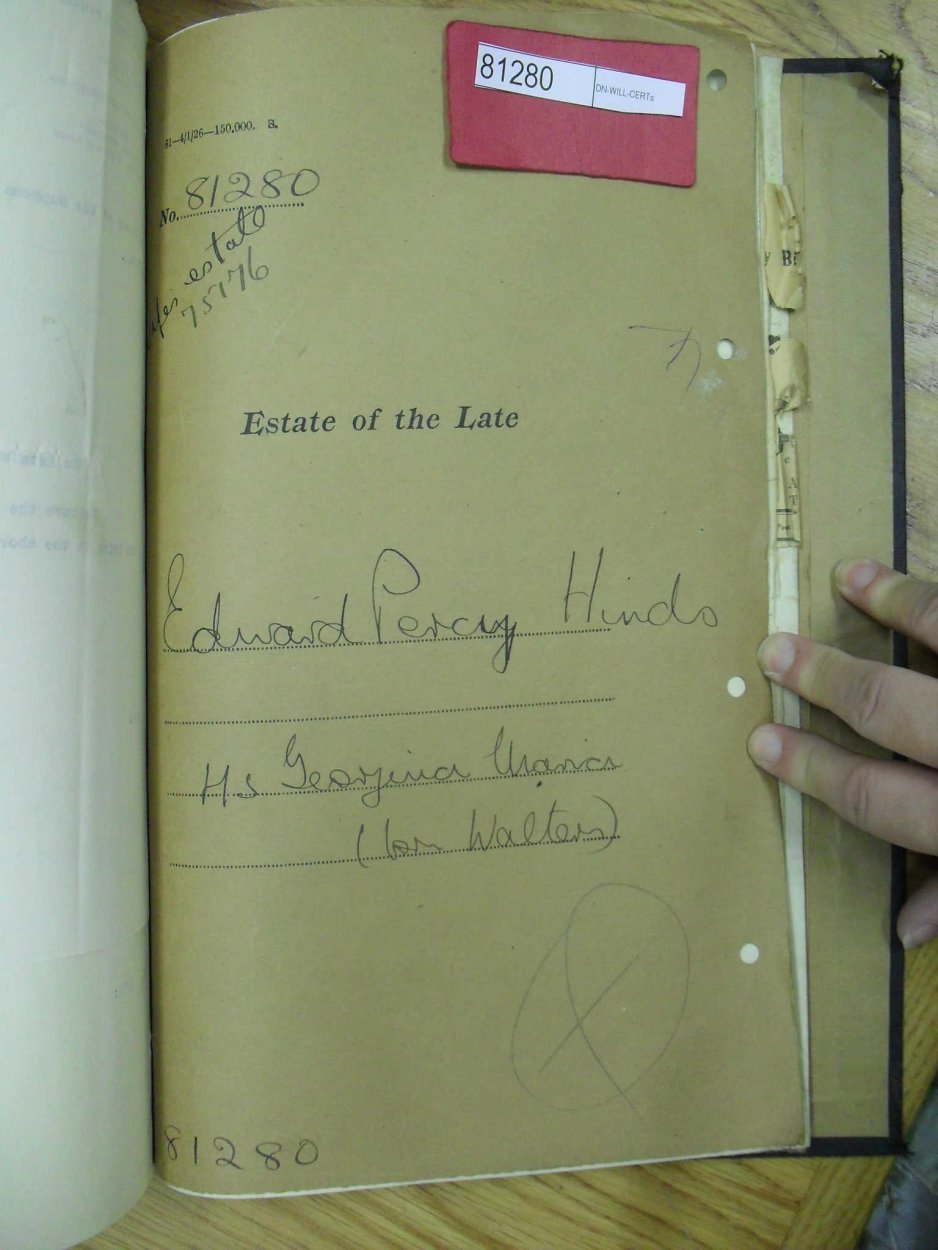 81280 DN-WILL-CERTs
61—4/1/26—150,000. S.
No. 81280
estate
75176
Estate of the Late
Edward Percy Hinds
Hs Georgina Maria
(born Walters)
81280